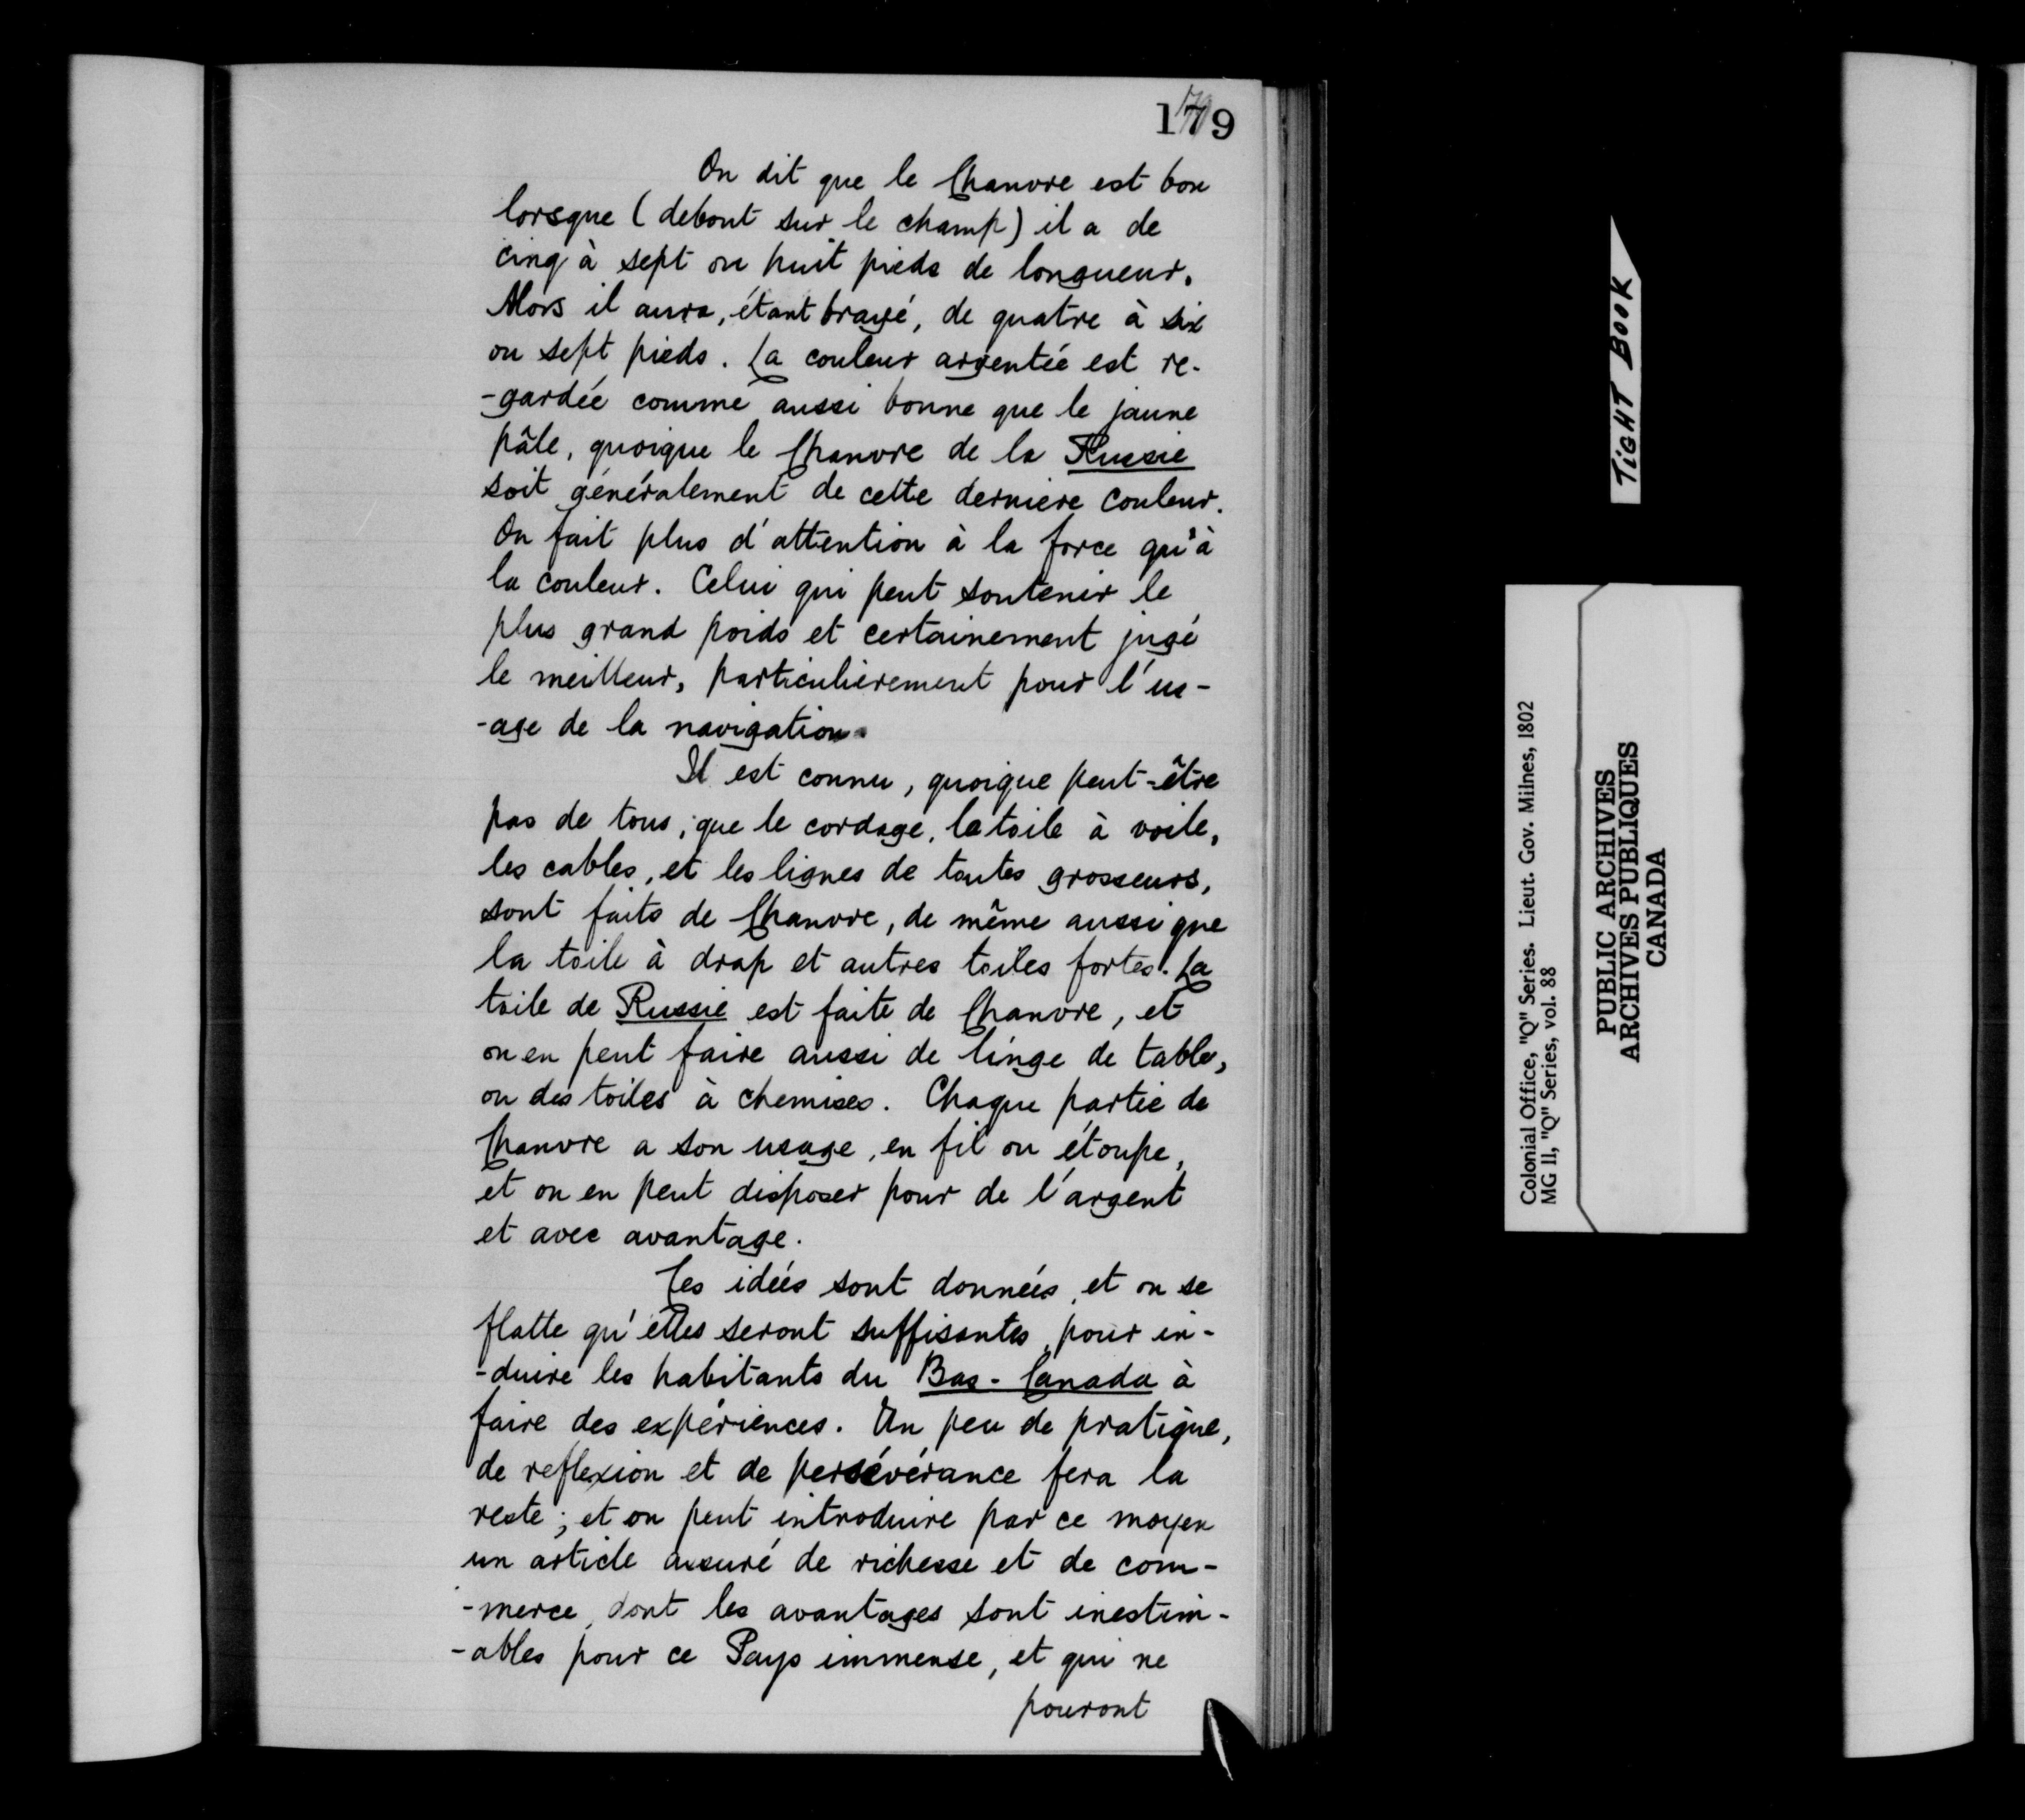 179
On dit que le Chanvre est bon
lorsque (debout sur le champ) il a de
cinq à sept ou huit pieds de longueur.
Alors il aura, étant brayé, de quatre à six
ou sept pieds. La couleur argentée est re-
-gardée comme aussi bonne que le jaune
pâle, quoique le Chanvre de la Russie
soit généralement de cette derniere couleur.
On fait plus d'attention à la force qu'à
la couleur. Celui qui peut soutenir le
plus grand poids et certainement jugé
le meilleur, particulièrement pour l'us-
-age de la navigation.
Il est connu, quoique peut-être
pas de tous, que le cordage, la toile à voile,
les cables, et les lignes de toutes grosseurs,
sont faits de Chanvre, de même aussi que
la toile à drap et autres toiles fortes. La
toile de Russie est faite de Chanvre, et
on en peut faire aussi de linge de table,
ou des toiles à chemises. Chaque partie de
Chanvre a son usage, en fil ou étoupe,
et on en peut disposer pour de l'argent
et avec avantage.
Les idées sont données, et on se
flatte qu'elles seront suffisantes, pour in-
-duire les habitants du Bas-Canada à
faire des expériences. Un peu de pratique,
de reflexion et de persévérance fera la
reste; et on peut introduire par ce moyen
un article assuré de richesse et de com-
-merce, dont les avantages sont inestim-
-ables pour ce Pays immense, et qui ne
pouront
TIGHT BOOK
Colonial Office, "Q" Series. Lieut. Gov. Milnes, 1802
MG 11, "Q" Series, vol. 88
PUBLIC ARCHIVES
ARCHIVES PUBLIQUES
CANADA